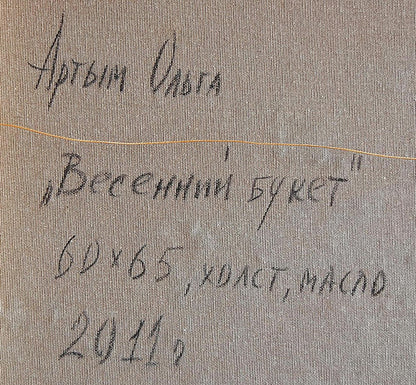 Артым Ольга
„Весенний букет"
60×65, холст, масло
2011г